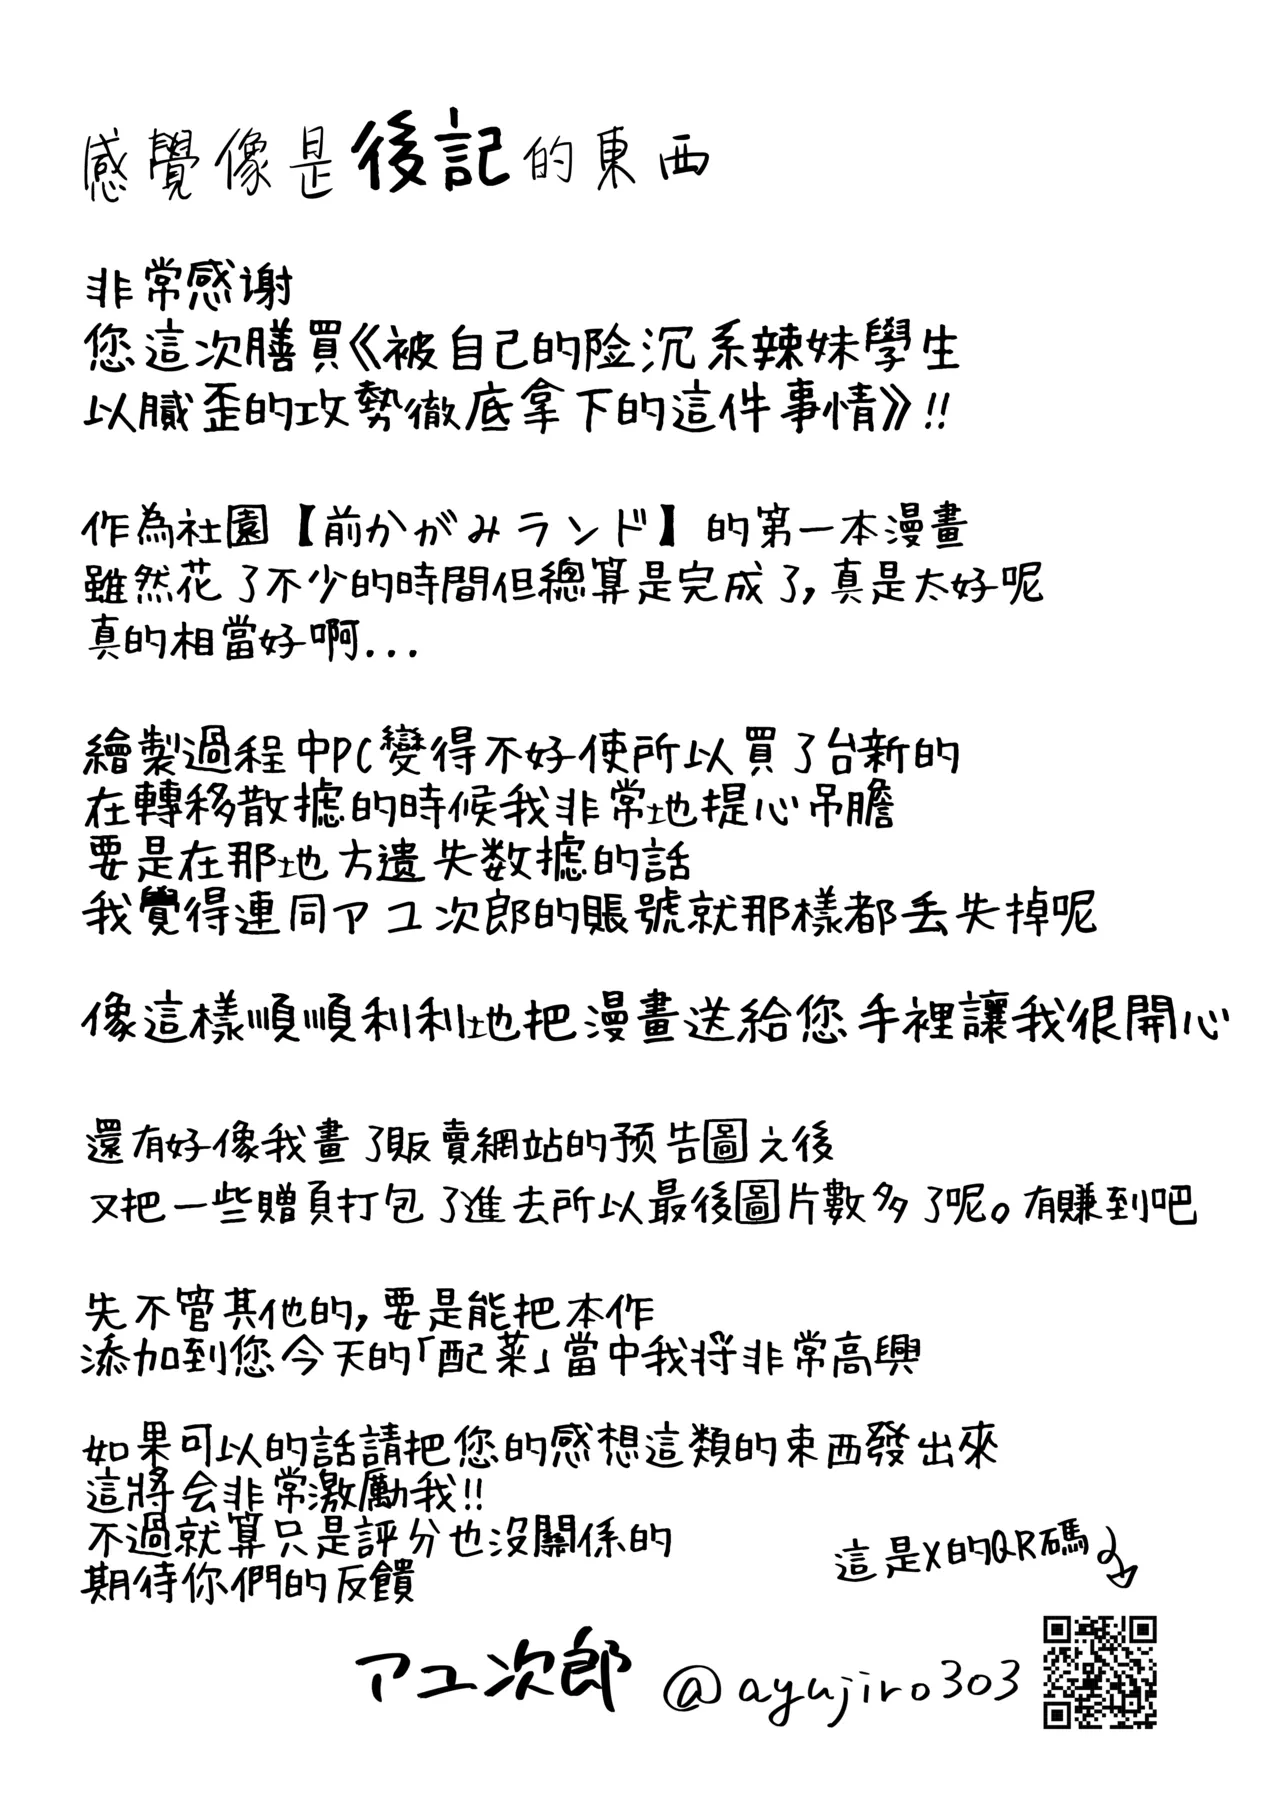 感覺像是後記的東西
非常感谢
您這次購買《被自己的险沉系辣妹學生
以膩歪的攻勢徹底拿下的這件事情》!!
作為社園【前かがみランド】的第一本漫畫
雖然花了不少的時間但總算是完成了,真是太好呢
真的相當好啊...
繪製過程中PC變得不好使所以買了台新的
在轉移散據的時候我非常地提心吊膽
要是在那地方遗失数據的話
我覺得連同アユ次郎的賬號就那樣都丢失掉呢
像這樣順順利利地把漫畫送給您手裡讓我很開心
還有好像我畫了販賣網站的预告圖之後
又把一些贈頁打包了進去所以最後圖片數多了呢。有賺到吧
先不管其他的,要是能把本作
添加到您今天的「配菜」當中我将非常高興
如果可以的話請把您的感想這類的東西發出來
這將会非常激勵我!!
不過就算只是評分也沒關係的
期待你們的反饋
這是X的QR碼
アユ次郎 @ayujiro303